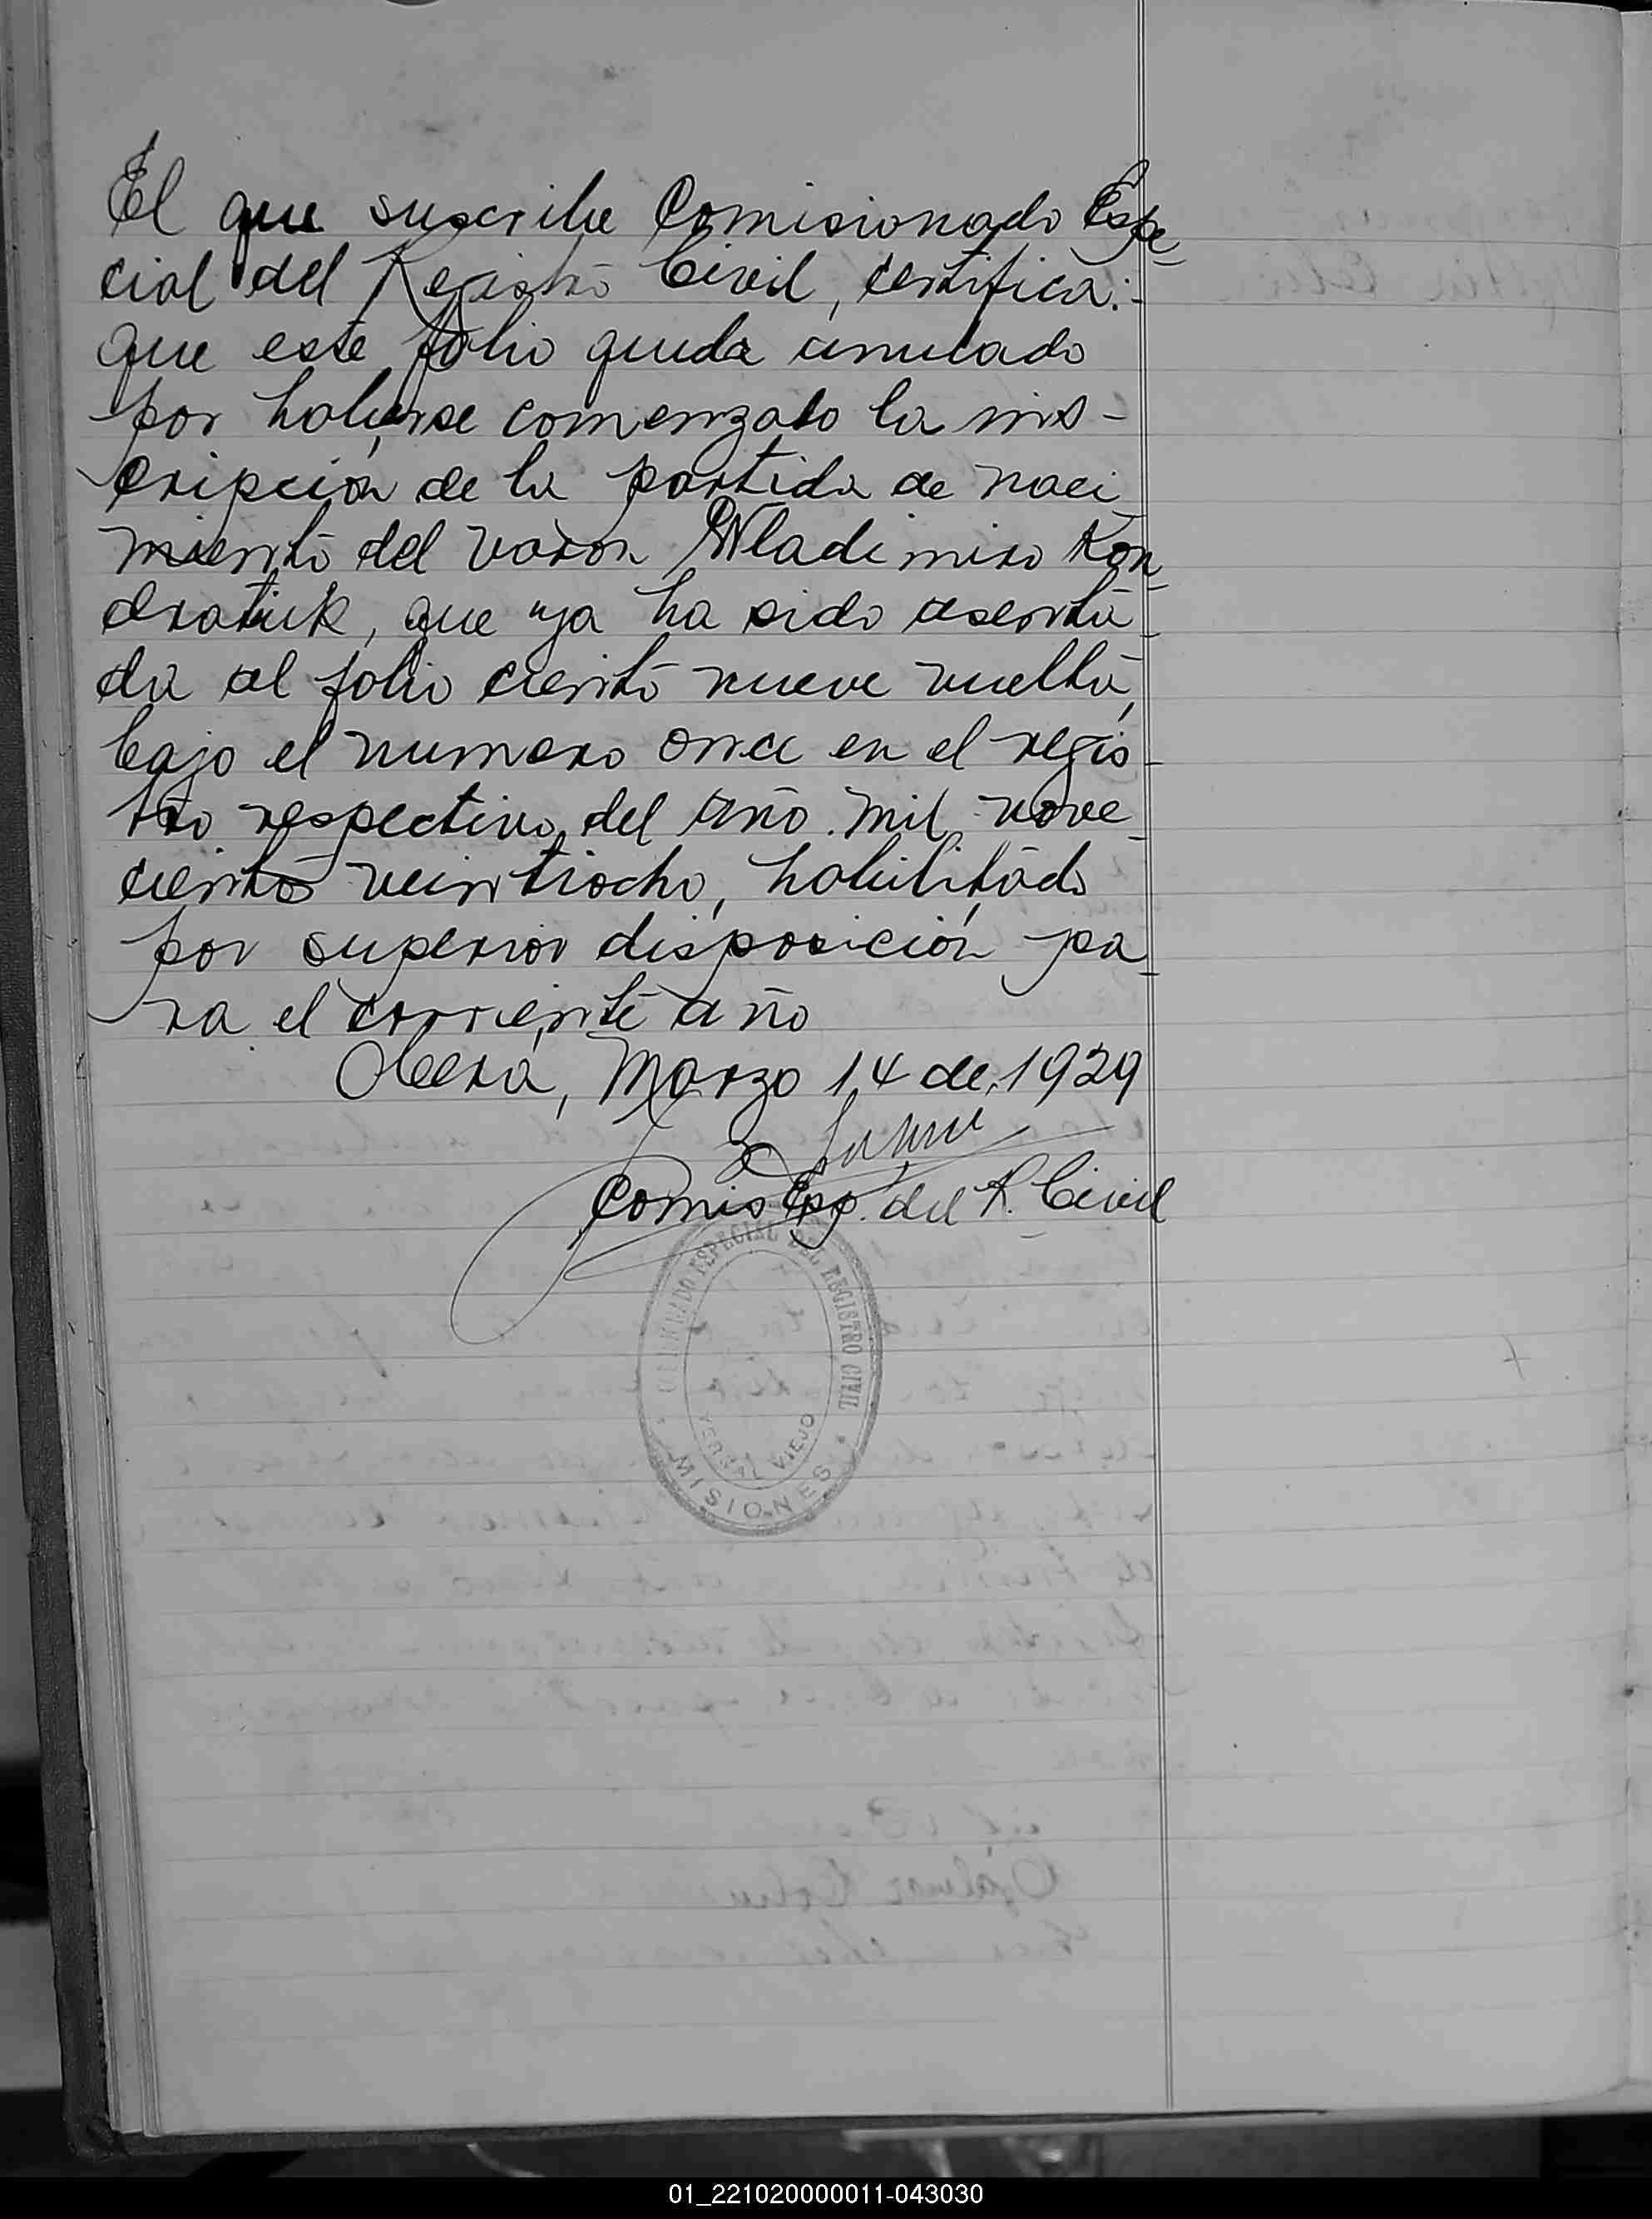 El que suscribe Comisionado Espe-
cial del Registro Civil, certifica:-
que este folio queda anulado
por haberse comenzado la ins-
cripcion de la partida de naci-
miento del varon Wladimiro Kon-
dratiuk, que ya ha sido asenta-
da al folio ciento nueve vuelta,
bajo el numero once en el regis-
tro respectivo del año mil nove-
cientos veintiocho, habilitado
por superior disposición pa-
ra el corriente año
Oberá, Marzo 14 de 1929
Comis. Esp. del R. Civil
COMISIONADO ESPECIAL DEL REGISTRO CIVIL
YERBAL VIEJO
MISIONES
01_221020000011-043030